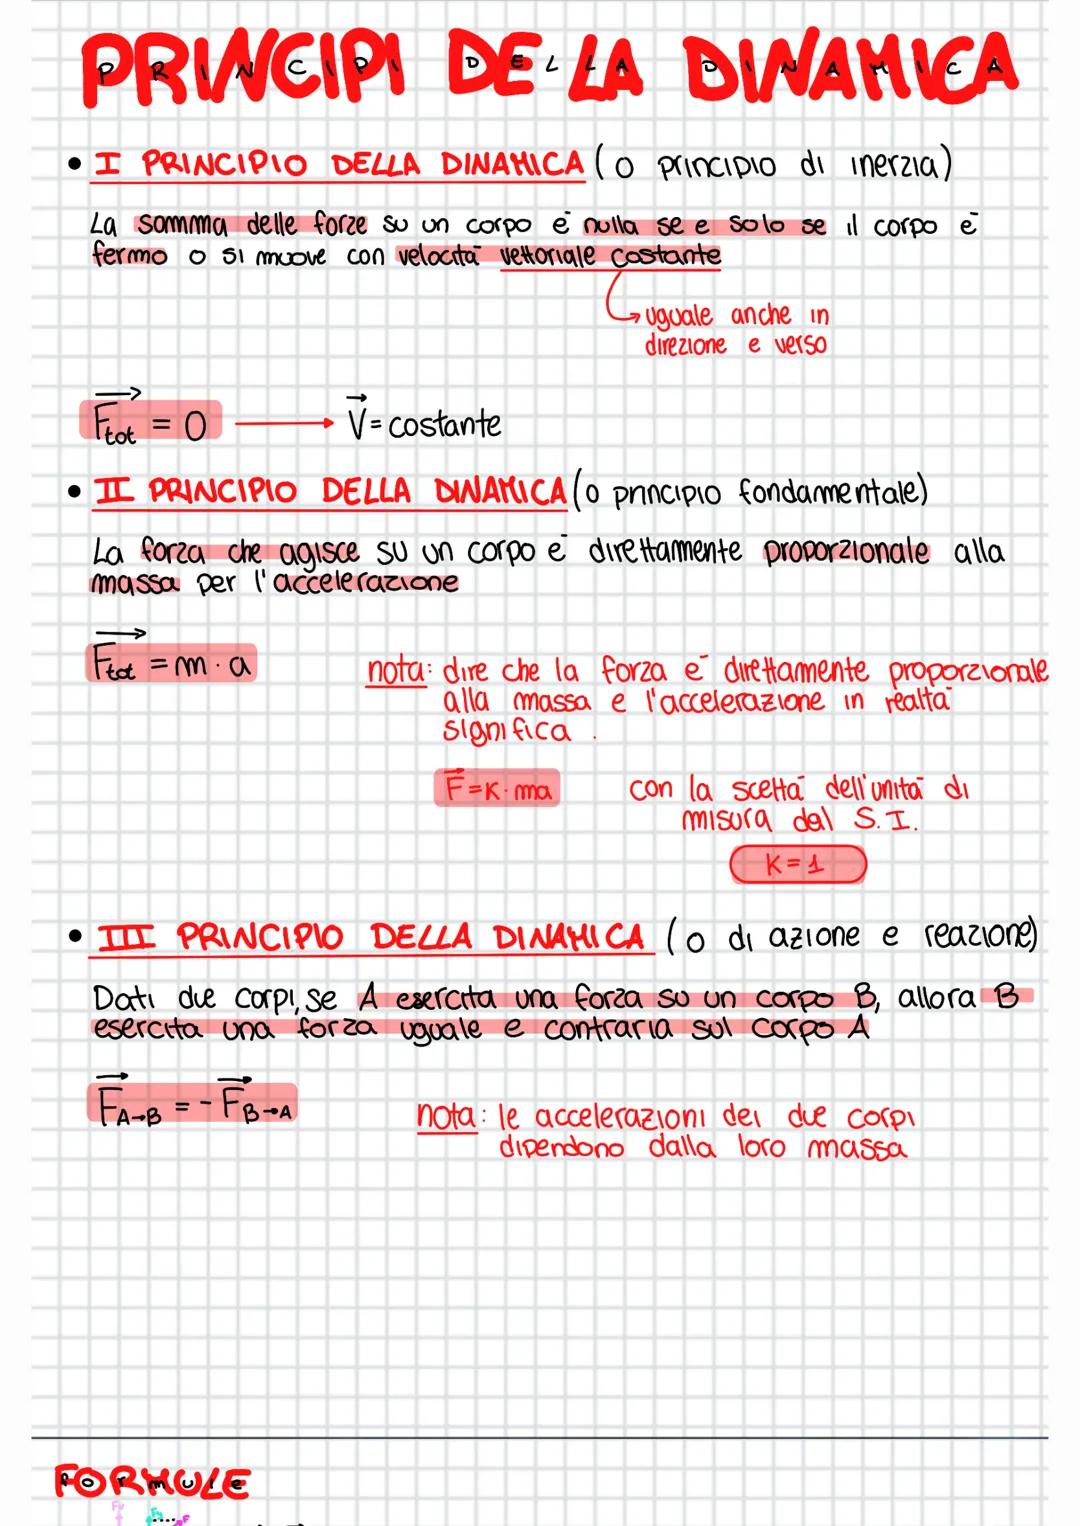 PRINCIPI DELLA DINAMICA
• I PRINCIPIO DELLA DINAMICA (o principio di inerzia)
La somma delle forze su un corpo è nulla se e solo se il corpo è
fermo o si muove con velocità vettoriale costante
uguale anche in
direzione e verso
F⃗tot = 0 → V⃗ = costante
• II PRINCIPIO DELLA DINAMICA (o principio fondamentale)
La forza che agisce su un corpo è direttamente proporzionale alla
massa per l'accelerazione
F⃗tot = m · a
nota: dire che la forza è direttamente proporzionale
alla massa e l'accelerazione in realtà
significa .
F⃗ = K · ma
con la sceltà dell'unità di
misura dal S.I.
K = 1
• III PRINCIPIO DELLA DINAMICA (o di azione e reazione)
Dati due corpi, se A esercita una forza su un corpo B, allora B
esercita una forza uguale e contraria sul corpo A
F⃗A→B = - F⃗B→A
nota: le accelerazioni dei due corpi
dipendono dalla loro massa
FORMULE